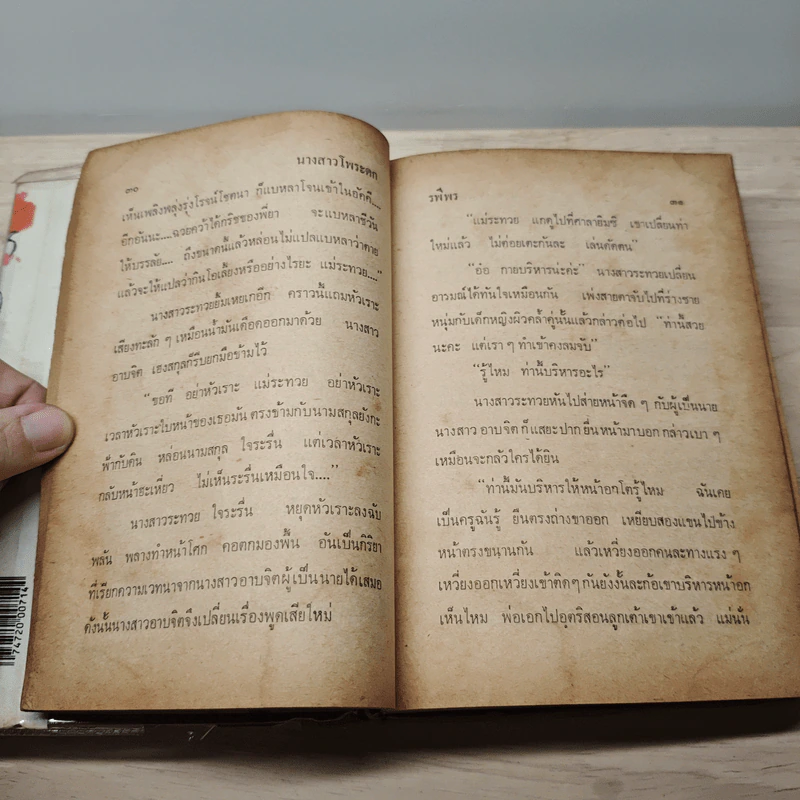 ๓๐
นางสาวโพระดก
เห็นเพลิงพลุ่งรุ่งโรจน์โชตนา ก็แบหลาโจนเข้าในอัคคี....
อีกอันนะ....ฉวยคว้าได้กริชของพี่ยา จะแบหลาชีวัน
ให้บรรลัย.... ถึงขนาดนี้แล้วหล่อนไม่แปลแบหลาว่าตาย
แล้วจะให้แปลว่ากินโอเลี้ยงหรืออย่างไรยะ แม่ระทวย....”
นางสาวระทวยยิ้มเหยเกอีก คราวนี้แถมหัวเราะ
เสียงตะลัก ๆ เหมือนน้ำมันเดือดออกมาด้วย นางสาว
อาบจิต เฮงสกุลก็รีบยกมือข้ามไว้
“ขอที อย่าหัวเราะ แม่ระทวย อย่าหัวเราะ
เวลาหัวเราะใบหน้าของเธอมัน ตรงข้ามกับนามสกุลยังกะ
ฟ้ากับดิน หล่อนนามสกุล ใจระรื่น แต่เวลาหัวเราะ
กลับหน้าฮะเหี่ยว ไม่เห็นระรื่นเหมือนใจ....”
นางสาวระทวย ใจระรื่น หยุดหัวเราะลงฉับ
พลัน พลางทำหน้าโศก คอตกมองพื้น อันเป็นกิริยา
ที่เรียกความเวทนาจากนางสาวอาบจิตผู้เป็นนายได้เสมอ
ดังนั้นนางสาวอาบจิตจึงเปลี่ยนเรื่องพูดเสียใหม่
รพีพร
๓๑
“แม่ระทวย แกดูไปที่ศาลาอีมซิ เขาเปลี่ยนท่า
ใหม่แล้ว ไม่ค่อยเตะกันละ เล่นดัดตน”
“อ๋อ กายบริหารน่ะค่ะ” นางสาวระทวยเปลี่ยน
อารมณ์ได้ทันใจเหมือนกัน เพ่งสายตาจับไปที่ร่างชาย
หนุ่มกับเด็กหญิงผิวคล้ำคู่นั้นแล้วกล่าวต่อไป “ท่านี้สวย
นะคะ แต่เรา ๆ ทำเข้าคงลมจับ”
“รู้ไหม ท่านี้บริหารอะไร”
นางสาวระทวยหันไปส่ายหน้าจืด ๆ กับผู้เป็นนาย
นางสาว อาบจิต ก็แสยะปาก ยื่นหน้ามาบอก กล่าวเบา ๆ
เหมือนจะกลัวใครได้ยิน
“ท่านี้มันบริหารให้หน้าอกโตรู้ไหม ฉันเคย
เป็นครูฉันรู้ ยืนตรงถ่างขาออก เหยียบสองแขนไปข้าง
หน้าตรงขนานกัน แล้วเหวี่ยงออกคนละทางแรง ๆ
เหวี่ยงออกเหวี่ยงเข้าติดๆ กันยังงั้นละก้อเขาบริหารหน้าอก
เห็นไหม พ่อเอกไปอุตริสอนลูกเต้าเขาเข้าแล้ว แม่นั่น
74720 00714